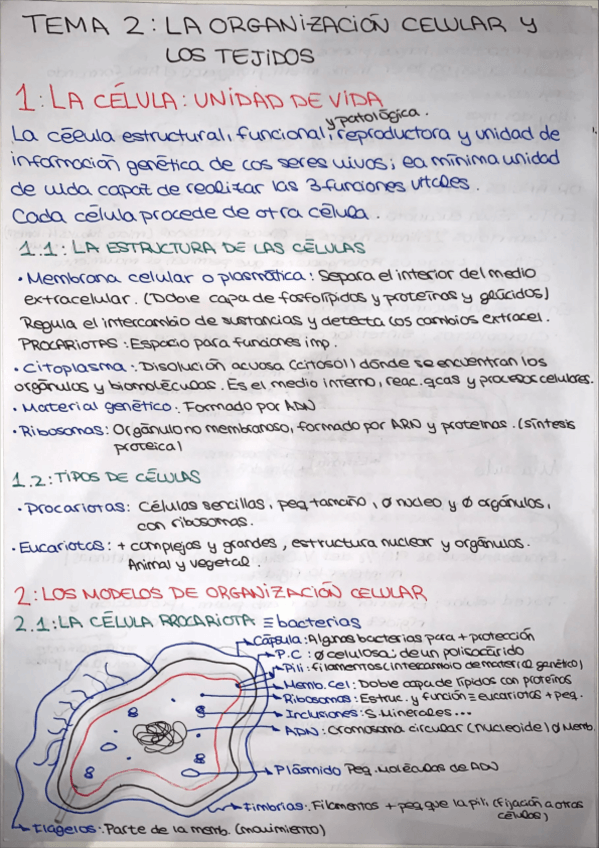 TEMA 2: LA ORGANIZACIÓN CELULAR Y
LOS TEJIDOS
1: LA CÉLULA: UNIDAD DE VIDA
y patológica.
La célula estructural, funcional, reproductora y unidad de
información genética de los seres vivos; la mínima unidad
de vida capaz de realizar las 3 funciones vitales.
Cada célula procede de otra célula.
1.1: LA ESTRUCTURA DE LAS CÉLULAS
· Membrana celular o plasmática: Separa el interior del medio
extracelular. (Doble capa de fosfolípidos y proteínas y glúcidos)
Regula el intercambio de sustancias y detecta los cambios extracel.
PROCARIOTAS: Espacio para funciones imp.
· Citoplasma: Disolución acuosa (citosol) dónde se encuentran los
orgánulos y biomoléculas. Es el medio interno, reac. qcas y procesos celulares.
· Material genético: Formado por ADN
· Ribosomas: Orgánulo no membranoso, formado por ARN y proteínas. (síntesis
proteica)
1.2: TIPOS DE CÉLULAS
· Procariotas: Células sencillas, peq. tamaño, Ø núcleo y Ø orgánulos,
con ribosomas.
· Eucariotas: + complejas y grandes, estructura nuclear y orgánulos.
Animal y vegetal.
2: LOS MODELOS DE ORGANIZACIÓN CELULAR
2.1: LA CÉLULA PROCARIOTA ≡ bacterias
Cápsula: Algnas bacterias para + protección
P.C: Ø celulosa; de un polisacárido
Pili: filamentos (intercambio de material genético)
Memb. Cel: Doble capa de lípidos con proteínas
Ribosomas: Estruc. y función ≡ eucariotas + peq.
Inclusiones: S. Minerales...
ADN: Cromosoma circular (nucleoide) Ø Memb.
Plásmido Peq. Moléculas de ADN
Fimbrias: Filamentos + peq que la pili (fijación a otras
células)
Flagelos: Parte de la memb. (movimiento)